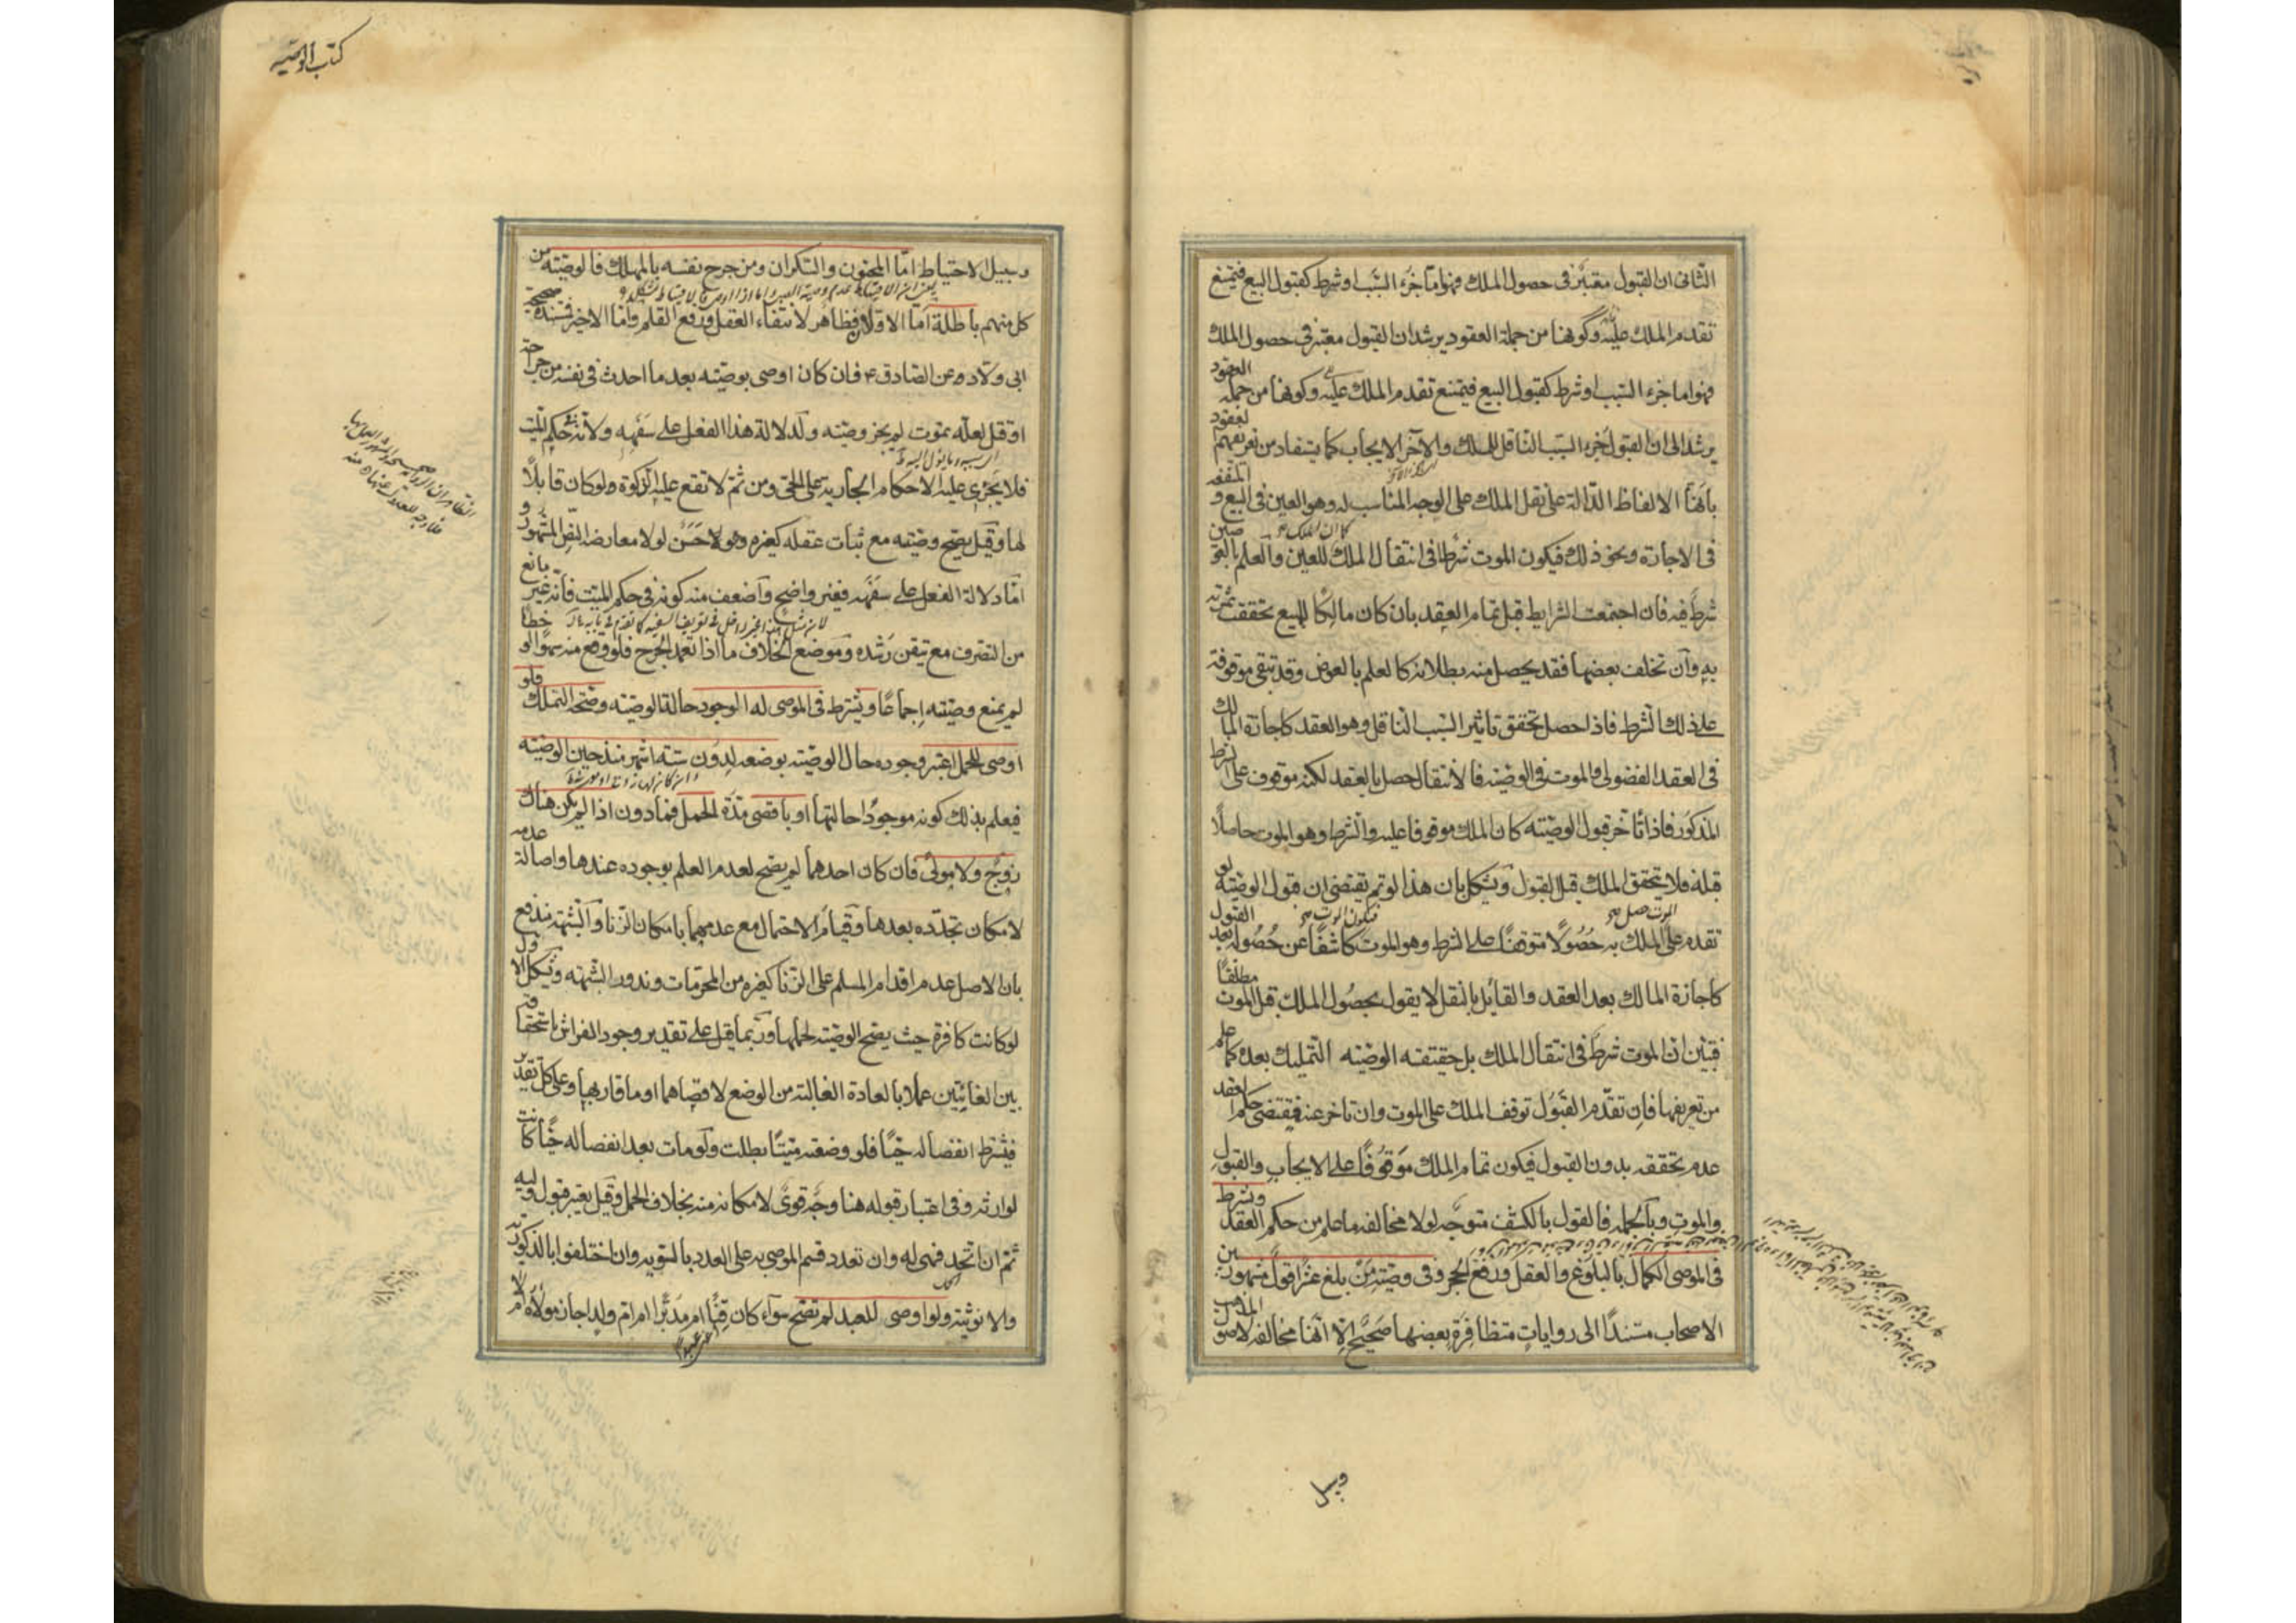 الثاني ان القبول معتبر في حصول الملك فهو اما جزء السبب او شرط كقبول البيع فيمتنع
تقدم الملك عليه وكونها من جملة العقود يرشد ان القبول معتبر في حصول الملك
فهو اما جزء السبب او شرط كقبول البيع فيمتنع تقدم الملك عليه وكونها من جملة العقود
يرشد الى ان القبول جزء السبب الناقل للملك والآخر الايجاب كما يستفاد من تعريفهم لعقود
بانها الالفاظ الدالة على نقل الملك على الوجه المناسب له وهو العين في البيع و المنفعة
في الاجارة ونحو ذلك فيكون الموت شرطا في انتقال الملك للعين والعلم بالعوضين
شرط فيه فان اجتمعت الشرايط قبل تمام العقد بان كان مالكا للمبيع تحققت ثمرته
به وان تخلف بعضها فقد يحصل منه بطلانه كالعلم بالعوض وقد تبقى موقوفة
على ذلك الشرط فاذا حصل تحقق تاثير السبب الناقل وهو العقد كاجازة المالك
في العقد الفضولي والموت في الوصية فالانتقال حصل بالعقد لكنه موقوف على الشرط
المذكور فاذا تاخر قبول الوصية كان الملك موقوفا عليه والشرط وهو الموت حاصلا
قبله فلا يتحقق الملك قبل القبول ويشكل بان هذا لو تم يقتضي ان قبول الوصية لو
تقدم على الملك به حصولا متوقفا على الشرط وهو الموت كاشفا عن حصوله بعد القبول
كاجازة المالك بعد العقد والقائل بالنقل لا يقول بحصول الملك قبل الموت مطلقا
فتبين ان الموت شرط في انتقال الملك بل حقيقة الوصية التمليك بعده كما علم
من تعريفها فان تقدم القبول توقف الملك على الموت وان تاخر عنه فيقتضي حكم العقد
عدم تحققه بدون القبول فيكون تمام الملك موقوفا على الايجاب والقبول
والموت وبالجملة فالقول بالكشف متوجه لولا مخالفة ما علم من حكم العقد ويشترط
في الموصي الكمال بالبلوغ والعقل ورفع الحجر وفي وصية من بلغ عشرا قول مشهور بين
الاصحاب مستندا الى روايات متظافرة بعضها صحيح الا انها مخالفة لاصول المذهب
وسبيل
كتاب الوصية
وسبيل الاحتياط اما المجنون والسكران ومن جرح نفسه بالمهلك فالوصية من
كل منهم باطلة اما الاولان فظاهر لانتفاء العقل ورفع القلم واما الاخير فمستنده صحيحة
ابي ولاد عن الصادق ع فان كان اوصى بوصية بعد ما احدث في نفسه من جراحة
او قتل لعله يموت لم يجز وصيته ولدلالة هذا الفعل على سفهه ولانه في حكم الميت
فلا يجري عليه الاحكام الجارية على الحي ومن ثم لا تقع عليه الزكوة ولو كان قابلا
لها وقيل يصح وصيته مع ثبات عقله كغيره وهو حسن لولا معارضة النص المشهور و
اما دلالة الفعل على سفهه فغير واضح واضعف منه كونه في حكم الميت فانه غير مانع
من التصرف مع تيقن رشده وموضع الخلاف ما اذا تعمد الجرح فلو وقع منه سهوا او خطأ
لم يمنع وصيته اجماعا ويشترط في الموصى له الوجود حالة الوصية وصحة التملك فلو
اوصى للحمل اعتبر وجوده حال الوصية بوضعه لدون ستة اشهر منذ حين الوصية
فيعلم بذلك كونه موجودا حالتها او باقصى مدة الحمل فما دون اذا لم يكن هناك
زوج ولا مولى فان كان احدهما لم يصح لعدم العلم بوجوده عندها واصالة عدمه
لامكان تجدده بعدها وقيام الاحتمال مع عدمهما بامكان الزنا والشبهة مندفع
بان الاصل عدم اقدام المسلم على الزنا كغيره من المحرمات وندور الشبهة ويشكل الاول
لو كانت كافرة حيث يصح الوصية لحملها وربما قيل على تقدير وجود الفراش باستحقاقه
بين الغايتين عملا بالعادة الغالبة من الوضع لاقصاهما او ما قاربها وعلى كل تقدير
فيشترط انفصاله حيا فلو وضعته ميتا بطلت ولو مات بعد انفصاله حيا كانت
لوارثه وفي اعتبار قبوله هنا وجه قوي لامكانه منه بخلاف الحمل وقيل يعتبر قبول وليه
ثم ان اتحد فهي له وان تعدد قسم الموصى به على العدد بالسوية وان اختلفوا بالذكورية
والانوثية ولو اوصى للعبد لم تصح سواء كان قنا ام مدبرا ام ام ولد اجاز مولاه ام لا